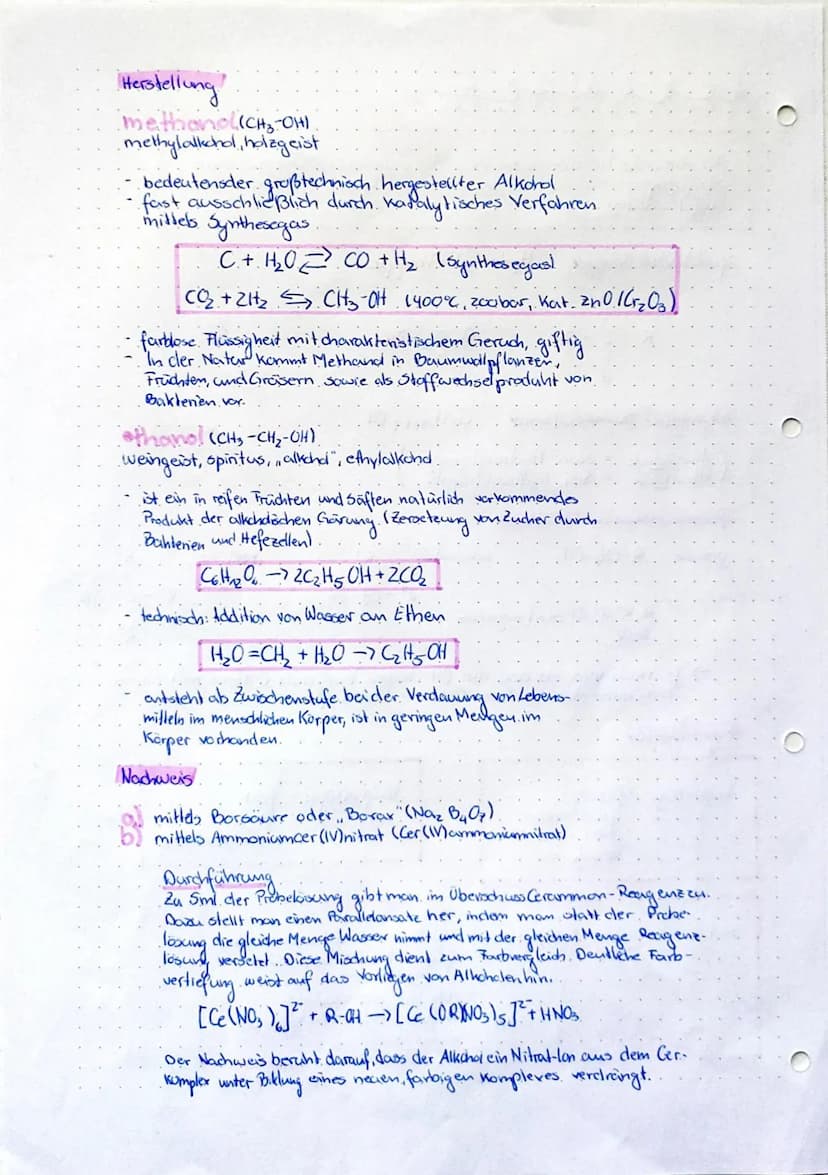 Herstellung
methanol (CH₃-OH)
methylalkohol, holzgeist
- bedeutensder großtechnisch hergestellter Alkohol
- fast ausschließlich durch katalytisches Verfahren
mittels Synthesegas
C + H₂O ⇌ CO + H₂ (Synthesegas)
CO₂ + 2H₂ ⇆ CH₃-OH (400°C, 200bar, Kat. ZnO/Cr₂O₃)
- farblose Flüssigkeit mit charakteristischem Geruch, giftig
- In der Natur kommt Methanol in Baumwollpflanzen,
Früchten, und Gräsern sowie als Stoffwechselprodukt von
Bakterien vor.
ethanol (CH₃-CH₂-OH)
weingeist, spiritus, „alkohol", ethylalkohol
- ist ein in reifen Früchten und Säften natürlich vorkommendes
Produkt der alkoholischen Gärung (Zersetzung von Zucker durch
Bakterien und Hefezellen)
C₆H₁₂O₆ → 2C₂H₅OH + 2CO₂
- technisch: Addition von Wasser an Ethen
H₂O = CH₂ + H₂O → C₂H₅-OH
- entsteht als Zwischenstufe bei der Verdauung von Lebens-
mitteln im menschlichen Körper, ist in geringen Mengen im
Körper vorhanden.
Nachweis
a) mittels Borsäure oder „Borax" (Na₂B₄O₇)
b) mittels Ammoniumcer(IV)nitrat (Cer(IV)ammoniumnitrat)
Durchführung
Zu 5ml der Probelösung gibt man im Überschuss Cerammon-Reagenz zu.
Dazu stellt man einen Parallelansatz her, indem man statt der Probe-
lösung die gleiche Menge Wasser nimmt und mit der gleichen Menge Reagenz-
lösung versetzt. Diese Mischung dient zum Farbvergleich. Deutliche Farb-
vertiefung weist auf das Vorliegen von Alkoholen hin.
[Ce(NO₃)₆]²⁻ + R-OH → [Ce(OR)(NO₃)₅]²⁻ + HNO₃
Der Nachweis beruht darauf, dass der Alkohol ein Nitrat-Ion aus dem Cer-
Komplex unter Bildung eines neuen, farbigen Komplexes verdrängt.